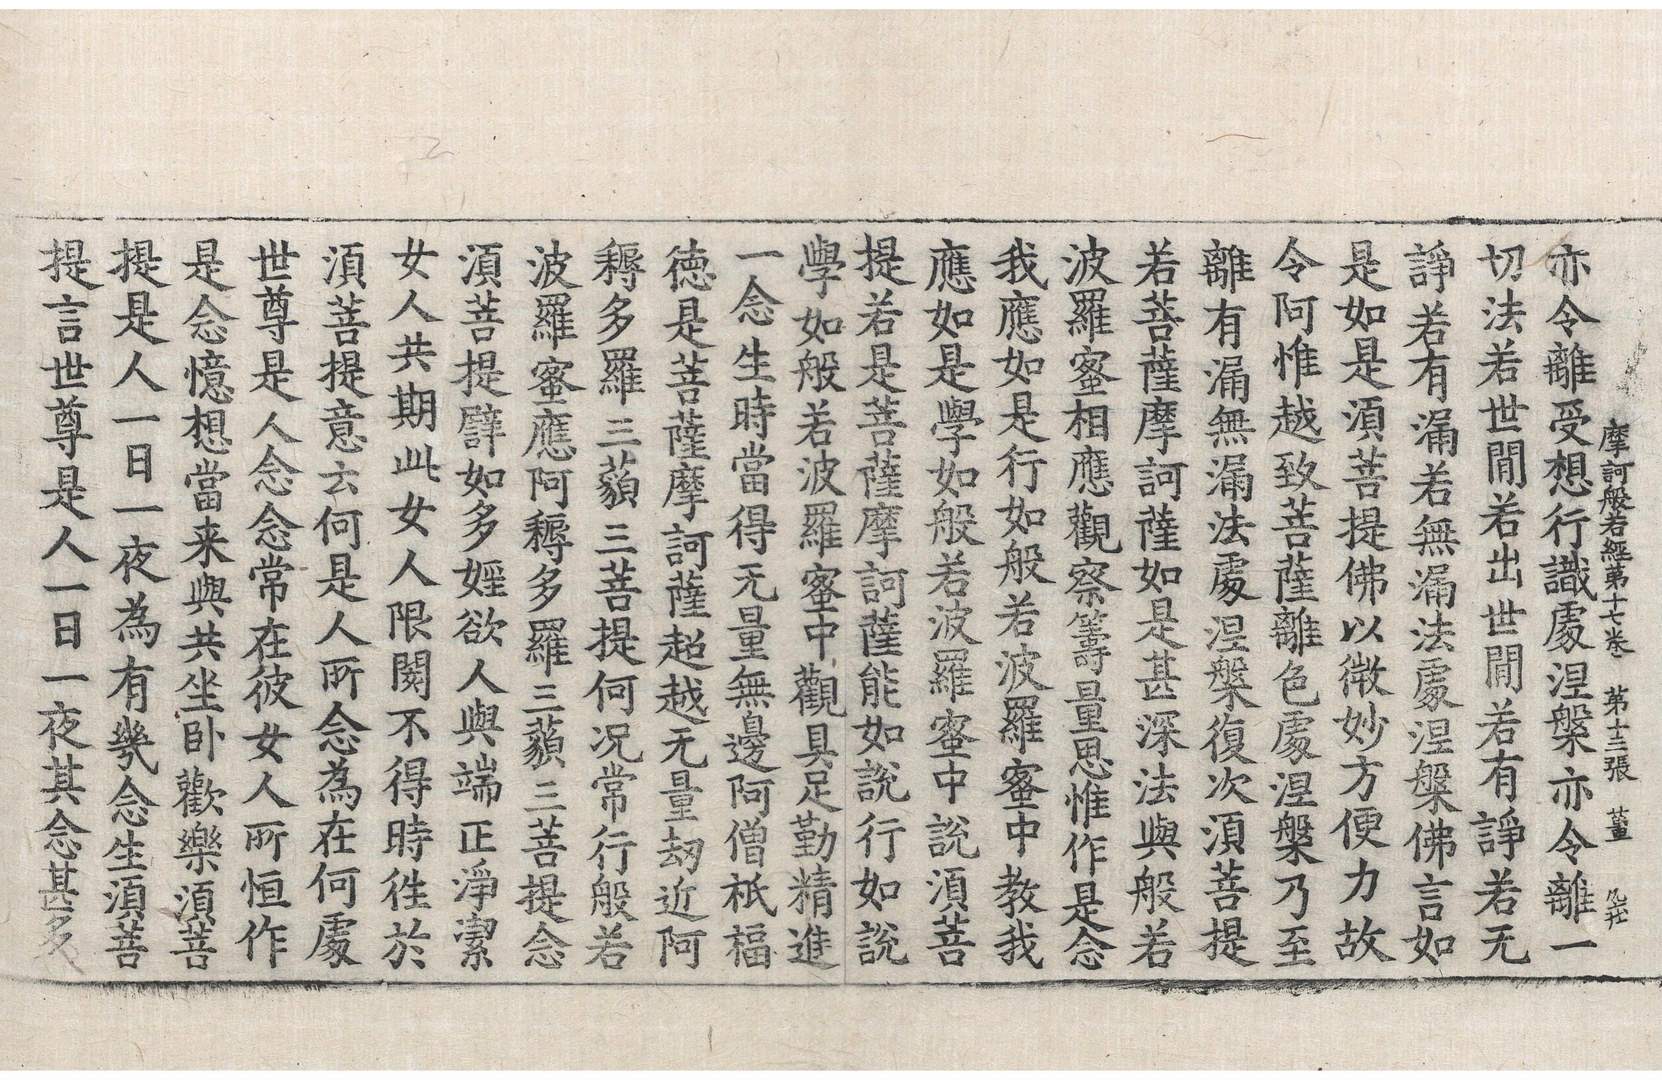 摩訶般若經第十七卷　第十三張　菫
亦令離受想行識處涅槃亦令離一
切法若世間若出世間若有諍若无
諍若有漏若無漏法處涅槃佛言如
是如是湏菩提佛以微妙方便力故
令阿惟越致菩薩離色處涅槃乃至
離有漏無漏法處涅槃復次湏菩提
若菩薩摩訶薩如是甚深法與般若
波羅蜜相應觀察籌量思惟作是念
我應如是行如般若波羅蜜中教我
應如是學如般若波羅蜜中說湏菩
提若是菩薩摩訶薩能如說行如說
學如般若波羅蜜中觀具足勤精進
一念生時當得无量無邊阿僧祇福
德是菩薩摩訶薩超越无量劫近阿
耨多羅三藐三菩提何况常行般若
波羅蜜應阿耨多羅三藐三菩提念
湏菩提譬如多婬欲人與端正淨潔
女人共期此女人限閡不得時徃於
湏菩提意云何是人所念為在何處
世尊是人念念常在彼女人所恒作
是念憶想當来與共坐卧歡樂湏菩
提是人一日一夜為有幾念生湏菩
提言世尊是人一日一夜其念甚多